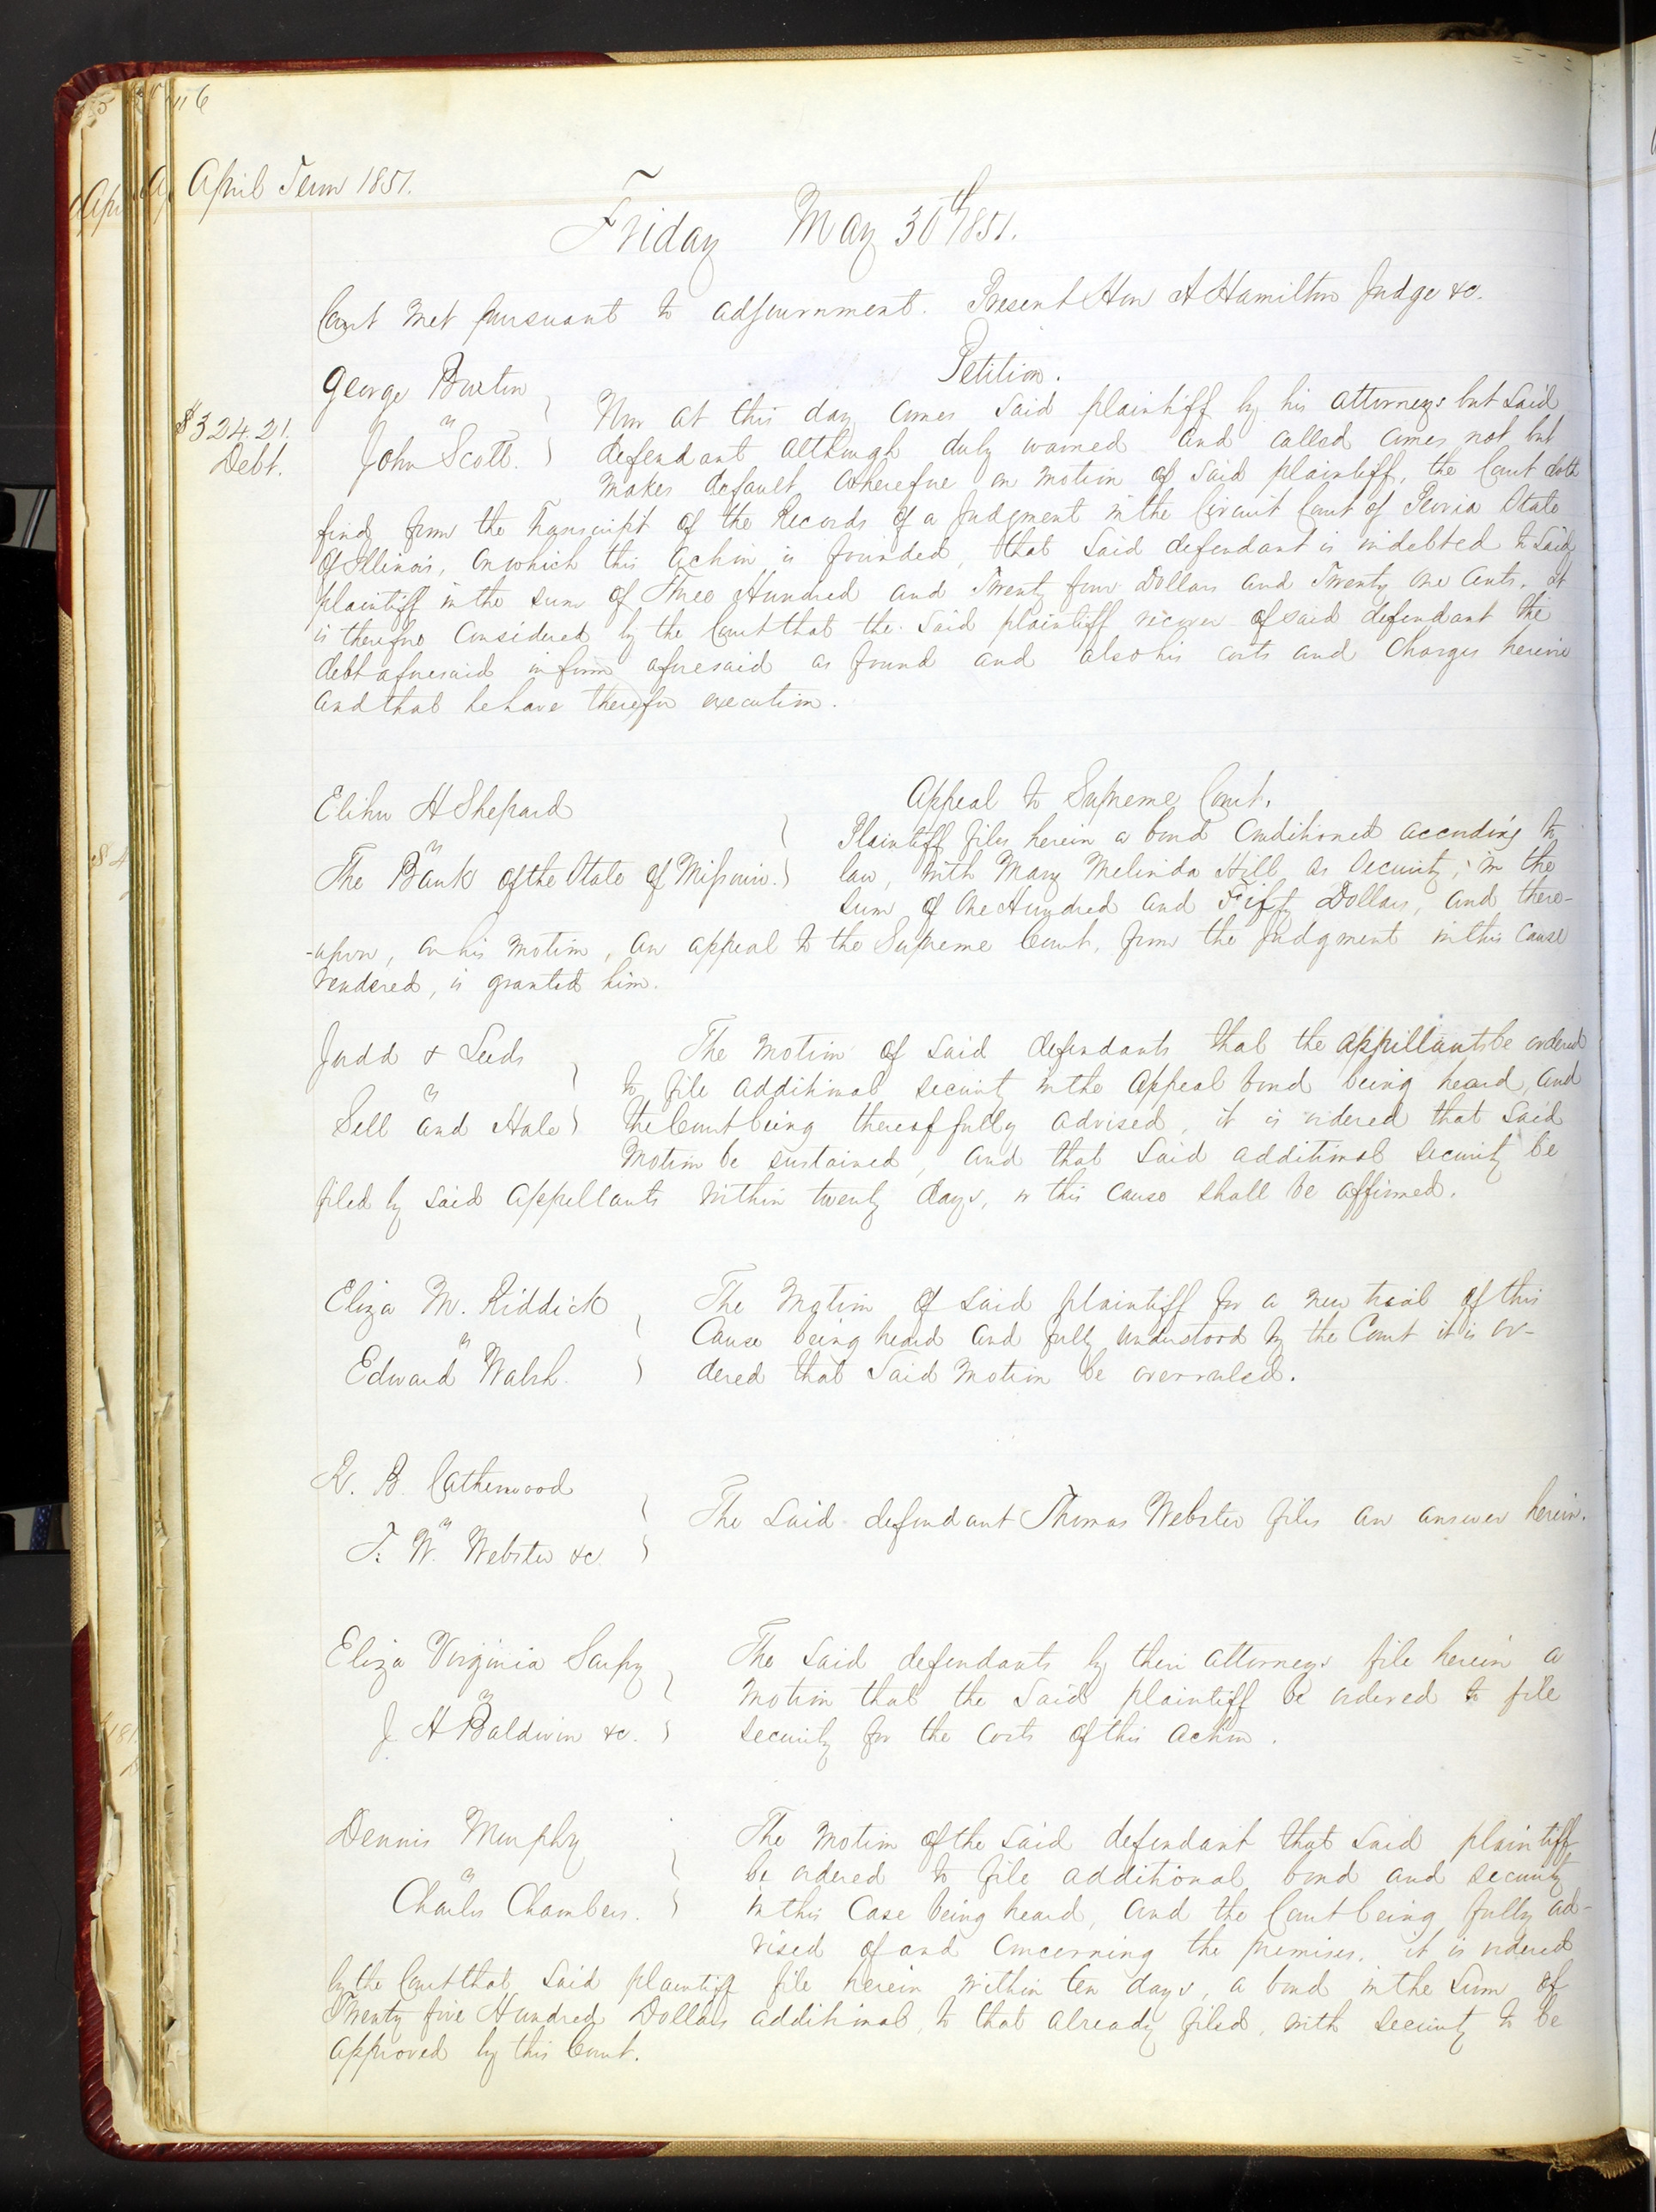 116
April Term 1851.
Friday May 30th 1851.
Court Met pursuant to adjournment. Present Hon A Hamilton Judge &c.
Petition.
George Burton
vs
John Scott.
$324.21.
Debt.
Now at this day comes said plaintiff by his attorneys but said
defendant although duly warned and called comes not but
makes default Wherefore on motion of said plaintiff, the Court doth
find from the Transcript of the Records of a Judgment in the Circuit Court of Peoria State
of Illinois, on which this action is founded, that said defendant is indebted to said
plaintiff in the sum of Three Hundred and Twenty four Dollars and Twenty one cents. It
is therefore considered by the Court that the said plaintiff recover of said defendant the
debt aforesaid in form aforesaid as found and also his costs and charges herein
and that he have therefor execution.
Elihu H Shepard
vs
The Bank of the State of Missouri.
Appeal to Supreme Court.
Plaintiff files herein a bond conditioned according to
law, with Mary Melinda Hill as security, in the
sum of One Hundred and Fifty Dollars, and there-
-upon, on his motion, an appeal to the Supreme Court, from the judgment in this cause
rendered, is granted him.
Judd & Leeds
vs
Sell and Hale
The motion of said defendants that the appillants be ordered
to file additional security in the appeal bond being heard, and
the Court being thereof fully advised, it is ordered that said
motion be sustained, and that said additional security be
filed by said appellants within twenty days, or this cause shall be affirmed.
Eliza M. Riddick
vs
Edward Walsh.
The Motion of said plaintiff for a new trial of this
Cause being heard and fully understood by the Court it is or-
dered that said motion be overruled.
R. B. Catherwood
vs
T. W. Webster &c.
The said defendant Thomas Webster files an answer herein.
Eliza Virginia Sarpy
vs
J H Baldwin &c.
The said defendants by their attorneys file herein a
motion that the said plaintiff be ordered to file
security for the costs of this action.
Dennis Murphy
vs
Charles Chambers.
The motion of the said defendant that said plaintiff
be ordered to file additional bond and security
in this case being heard, and the Court being fully ad-
vised of and concerning the premises. it is ordered
by the Court that said plaintiff file herein within ten days, a bond in the sum of
Twenty five Hundred Dollars additional, to that already filed, with security to be
approved by this Court.